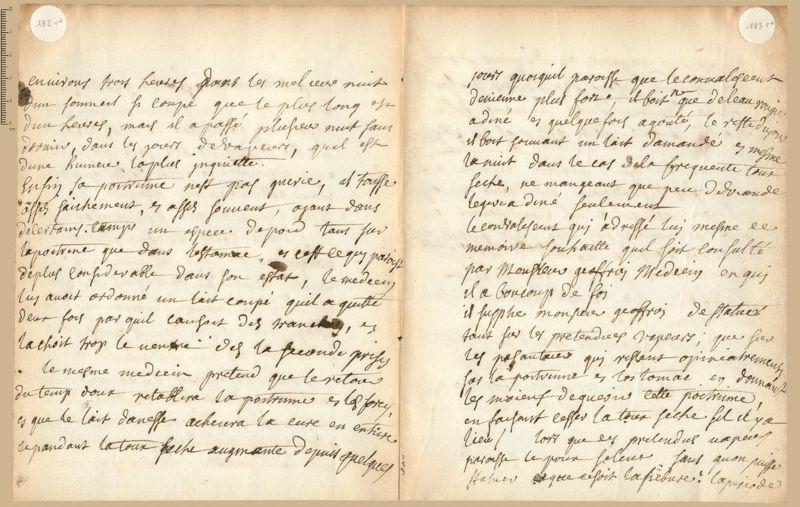 182 vo
environs trois heures Dans les meilieure nuit
dun sommeil si coupé que le plus long est
dune heures, mais il a passé plusieur nuit sans
dormir, dans les jours de vapeurs, quil est
dune humeur la plus inquiette.
Enfin sa poitrinne nest pas guerie, il tousse
asses saichement, et asses souvent, ayant dans
de certains temps un espece de poid tant sur
la poitrine que dans lestomac, et cest ce qui paroist
de plus considerable dans son estat, le medecin
luy avoit ordonné un lait coupé quil a quitté
deux fois par quil causoit des tranchés, et
lachoit trop le ventre des la seconde prise
le mesme medecin pretend que le retour
du temp doux retablira la poitrinne et les forces,
et que le lait danesse achevera la cure en entiere
cependant la toux seche augmante depuis quelques
183 ro
jours quoiquil paroisse que le convalescent
devienne plus fort, il boit que de leau rougie
a diné et quelque fois a gouté, le reste du jour
il boit souvant un lait damande et mesme
la nuit dans le cas de la frequente toux
seche, ne mangeant que peu de viande
le gras a diné seulement
le convalescent qui adressé luy mesme ce
memoire souhaitte quil soit consulté
par Monsieur geoffroy Medecin en qui
il a boucoup de foi
il supplie monsieur geoffroi de statuer
tant sur les pretendues vapeurs, que sur
les pesanteur qui restent opiniatrement
sur la poitrinne et lestomac en donnant
les moiens de guerir cette poitrinne
en faisant cesser la toux seche sil il y a
lieu, lors que ces pretendues vapeurs
paroisse le poux seleve sans quon puisse
statuer que ce soit la fiebvre, la periode